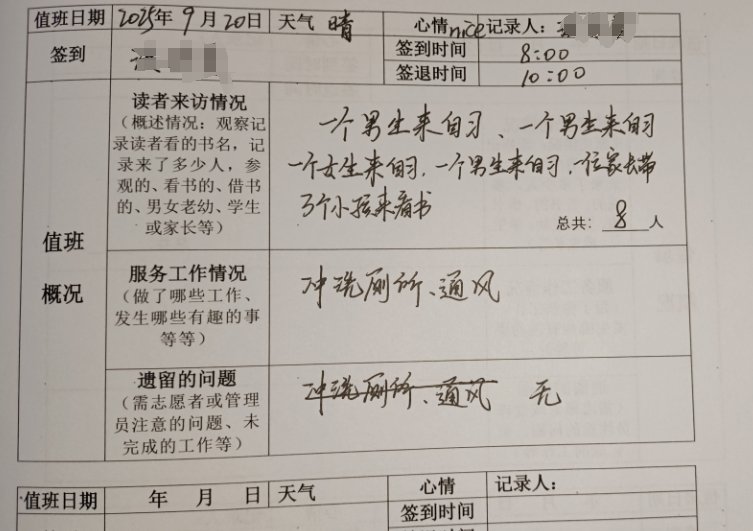 值班日期 2025年9月20日 天气 晴 心情 nice 记录人：
签到 签到时间 8:00
签退时间 10:00
值班概况
读者来访情况
（概述情况：观察记
录读者看的书名，记
录来了多少人，参
观的、看书的、借书
的、男女老幼、学生
或家长等）
一个男生来自习、一个男生来自习
一个女生来自习，一个男生来自习，一位家长带
3个小孩来看书
总共：8人
服务工作情况
（做了哪些工作、
发生哪些有趣的事
等等）
冲洗厕所、通风
遗留的问题
（需志愿者或管理
员注意的问题、未
完成的工作等）
冲洗厕所、通风 无
值班日期 年 月 日 天气 心情 记录人：
签到时间